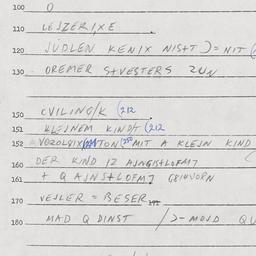 100 O
110 LEJZERIXE
120 JUDLEN KENIX NIST ) = NIT
130 OREMER SHVESTERS ZUN
150 CVILING/K (212
151 KLEJNEM KIND/T (212
152 MIT A KLEJN KIND
160 DER KIND IZ AJNGISHLOFM7
161 + Q AJNSHLOFM7
170 VEJLER = BESER
180 MAD Q DINST />- MOJD QU